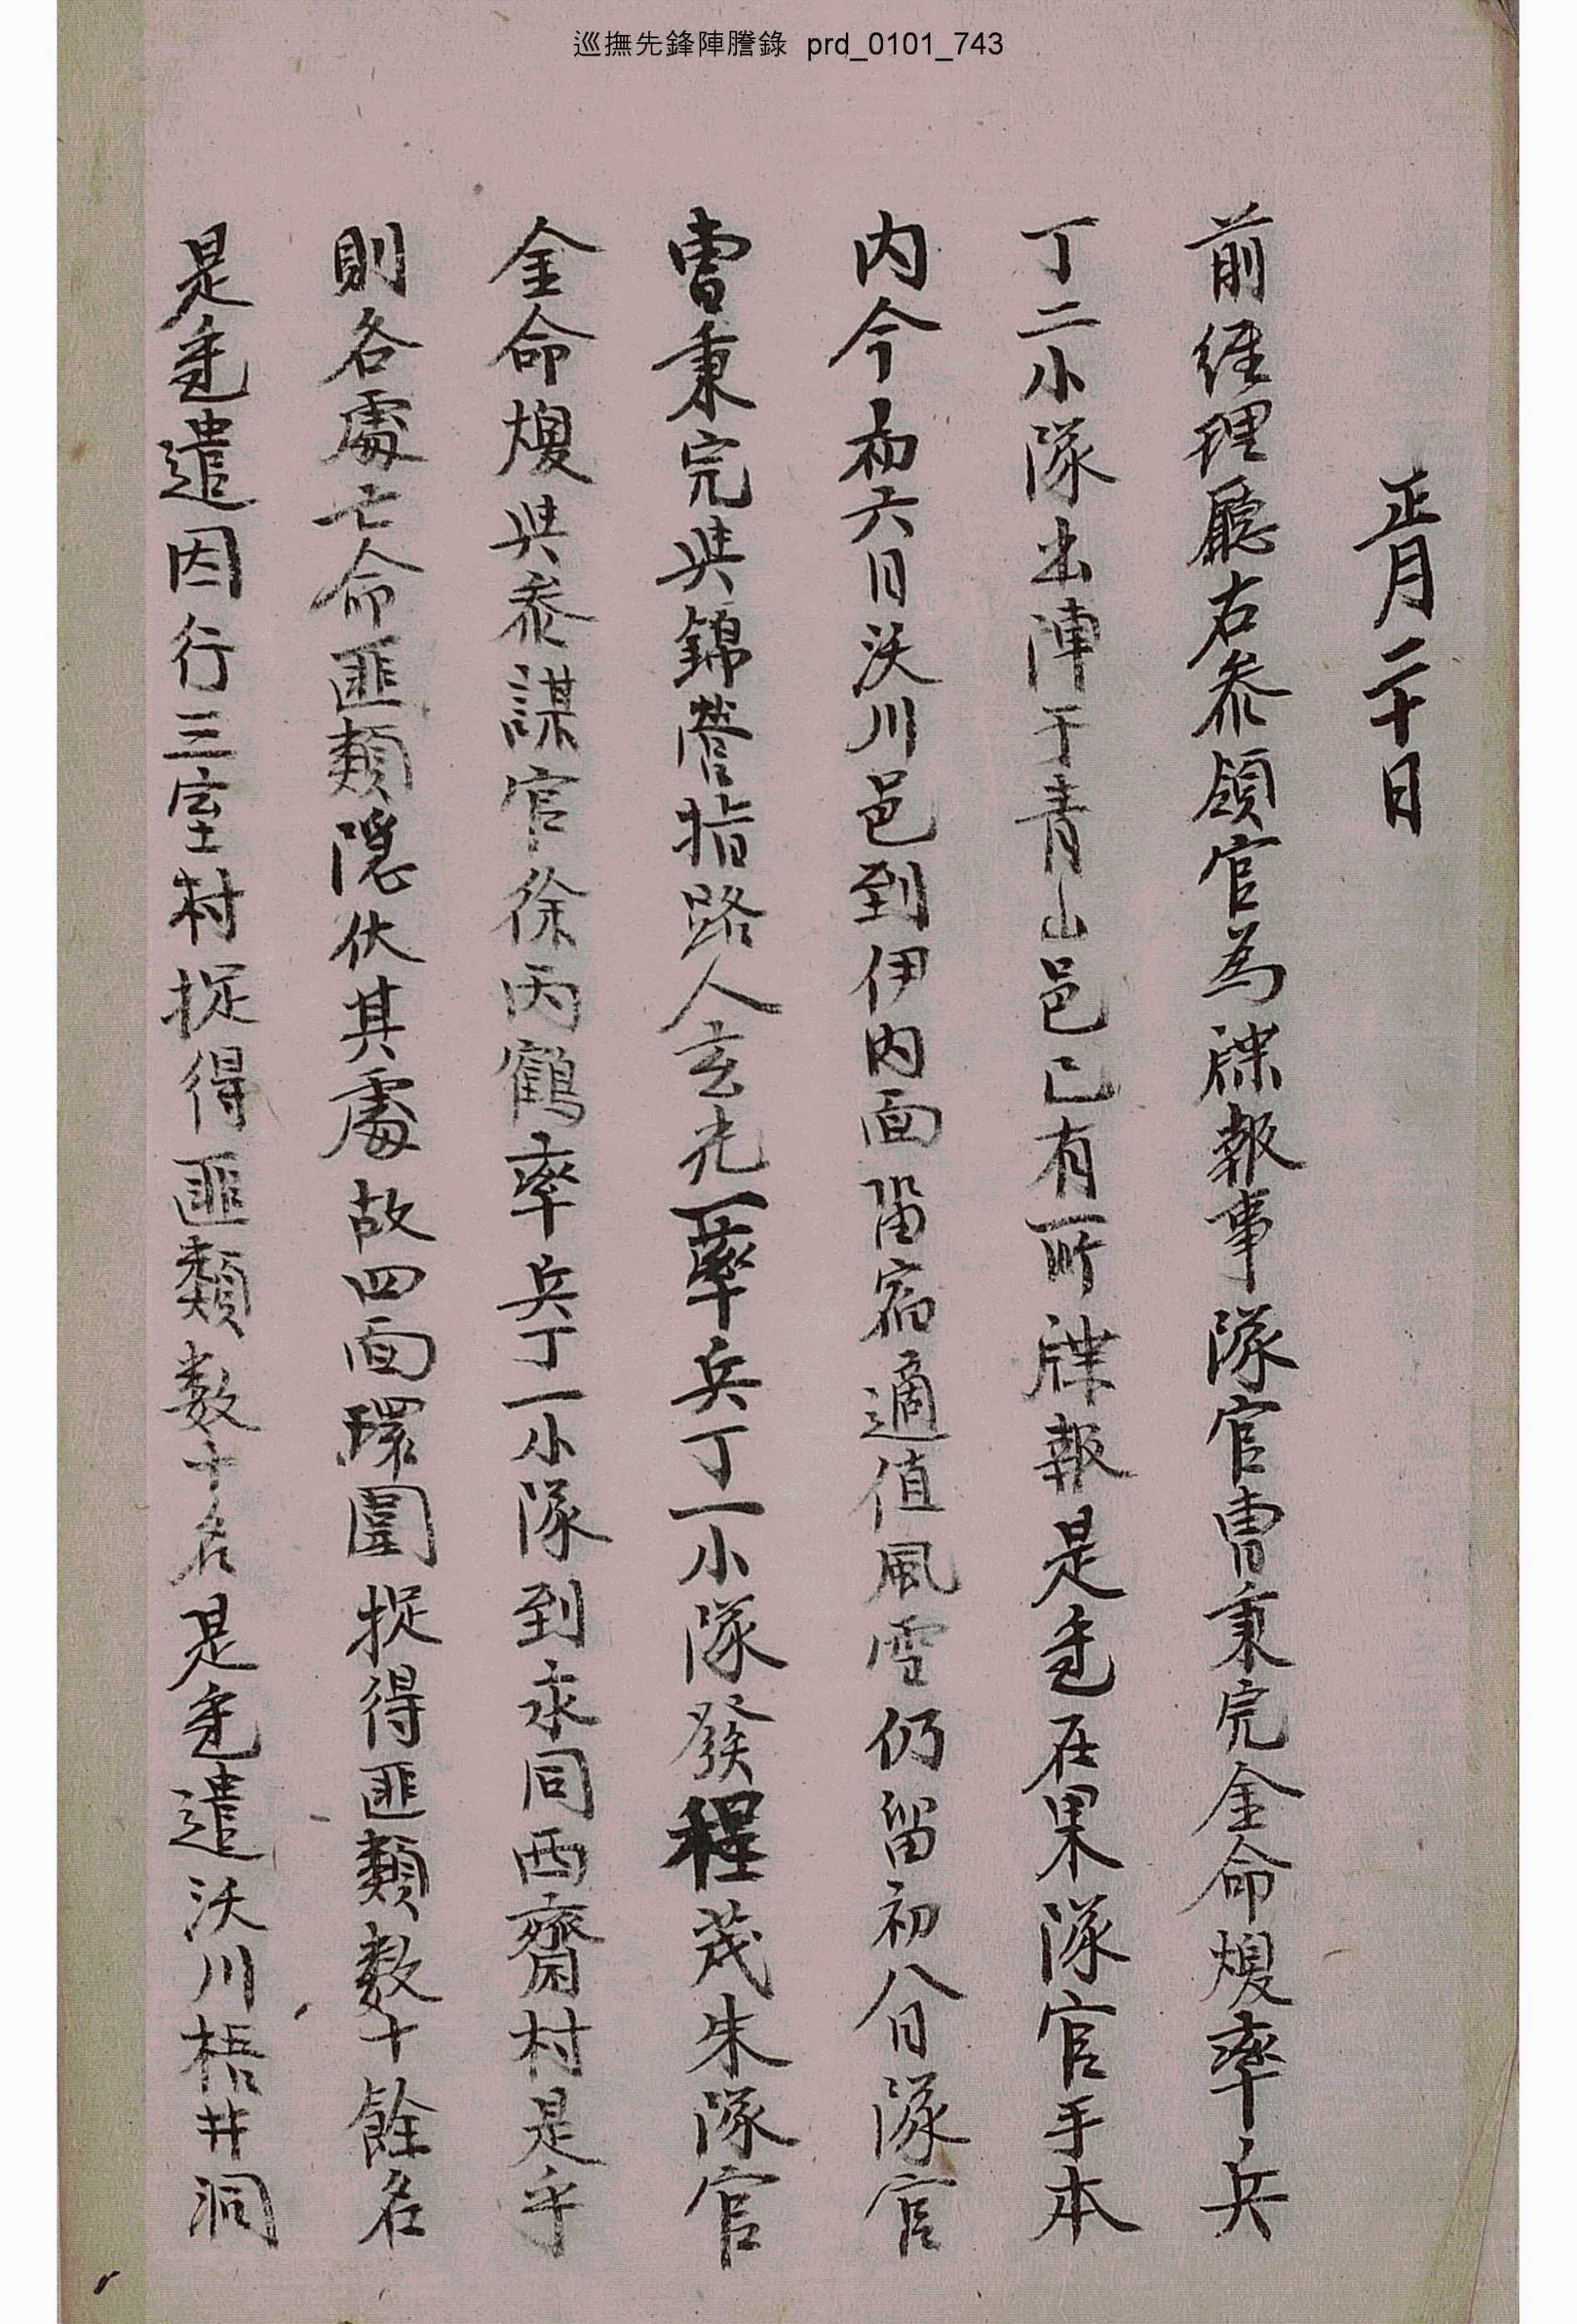 巡撫先鋒陣謄錄 prd_0101_743
正月二十日
前經理廳右參領官為牒報事隊官曺秉完金命煥率兵
丁二小隊出陣于青山邑已有所牒報是乇在果隊官手本
內今初六日沃川邑到伊內面留宿適值風雪仍留初八日隊官
曺秉完與錦營指路人玄光一率兵丁一小隊發程茂朱隊官
金命煥與參謀官徐丙鶴率兵丁一小隊到永同西齋村是乎
則各處亡命匪類隱伏其處故四面環圍捉得匪類數十餘名
是乇遣因行三室村捉得匪類數十名是乇遣沃川梧井洞